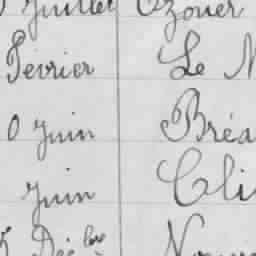 Juillet Ozouer
Février Le
0 Juin Bréa
Juin Cli
5 Déc bre